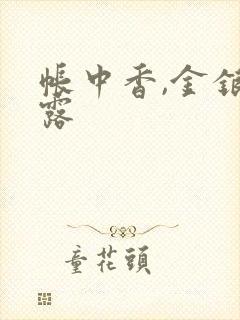 帳中香,金銀
露
童花頭